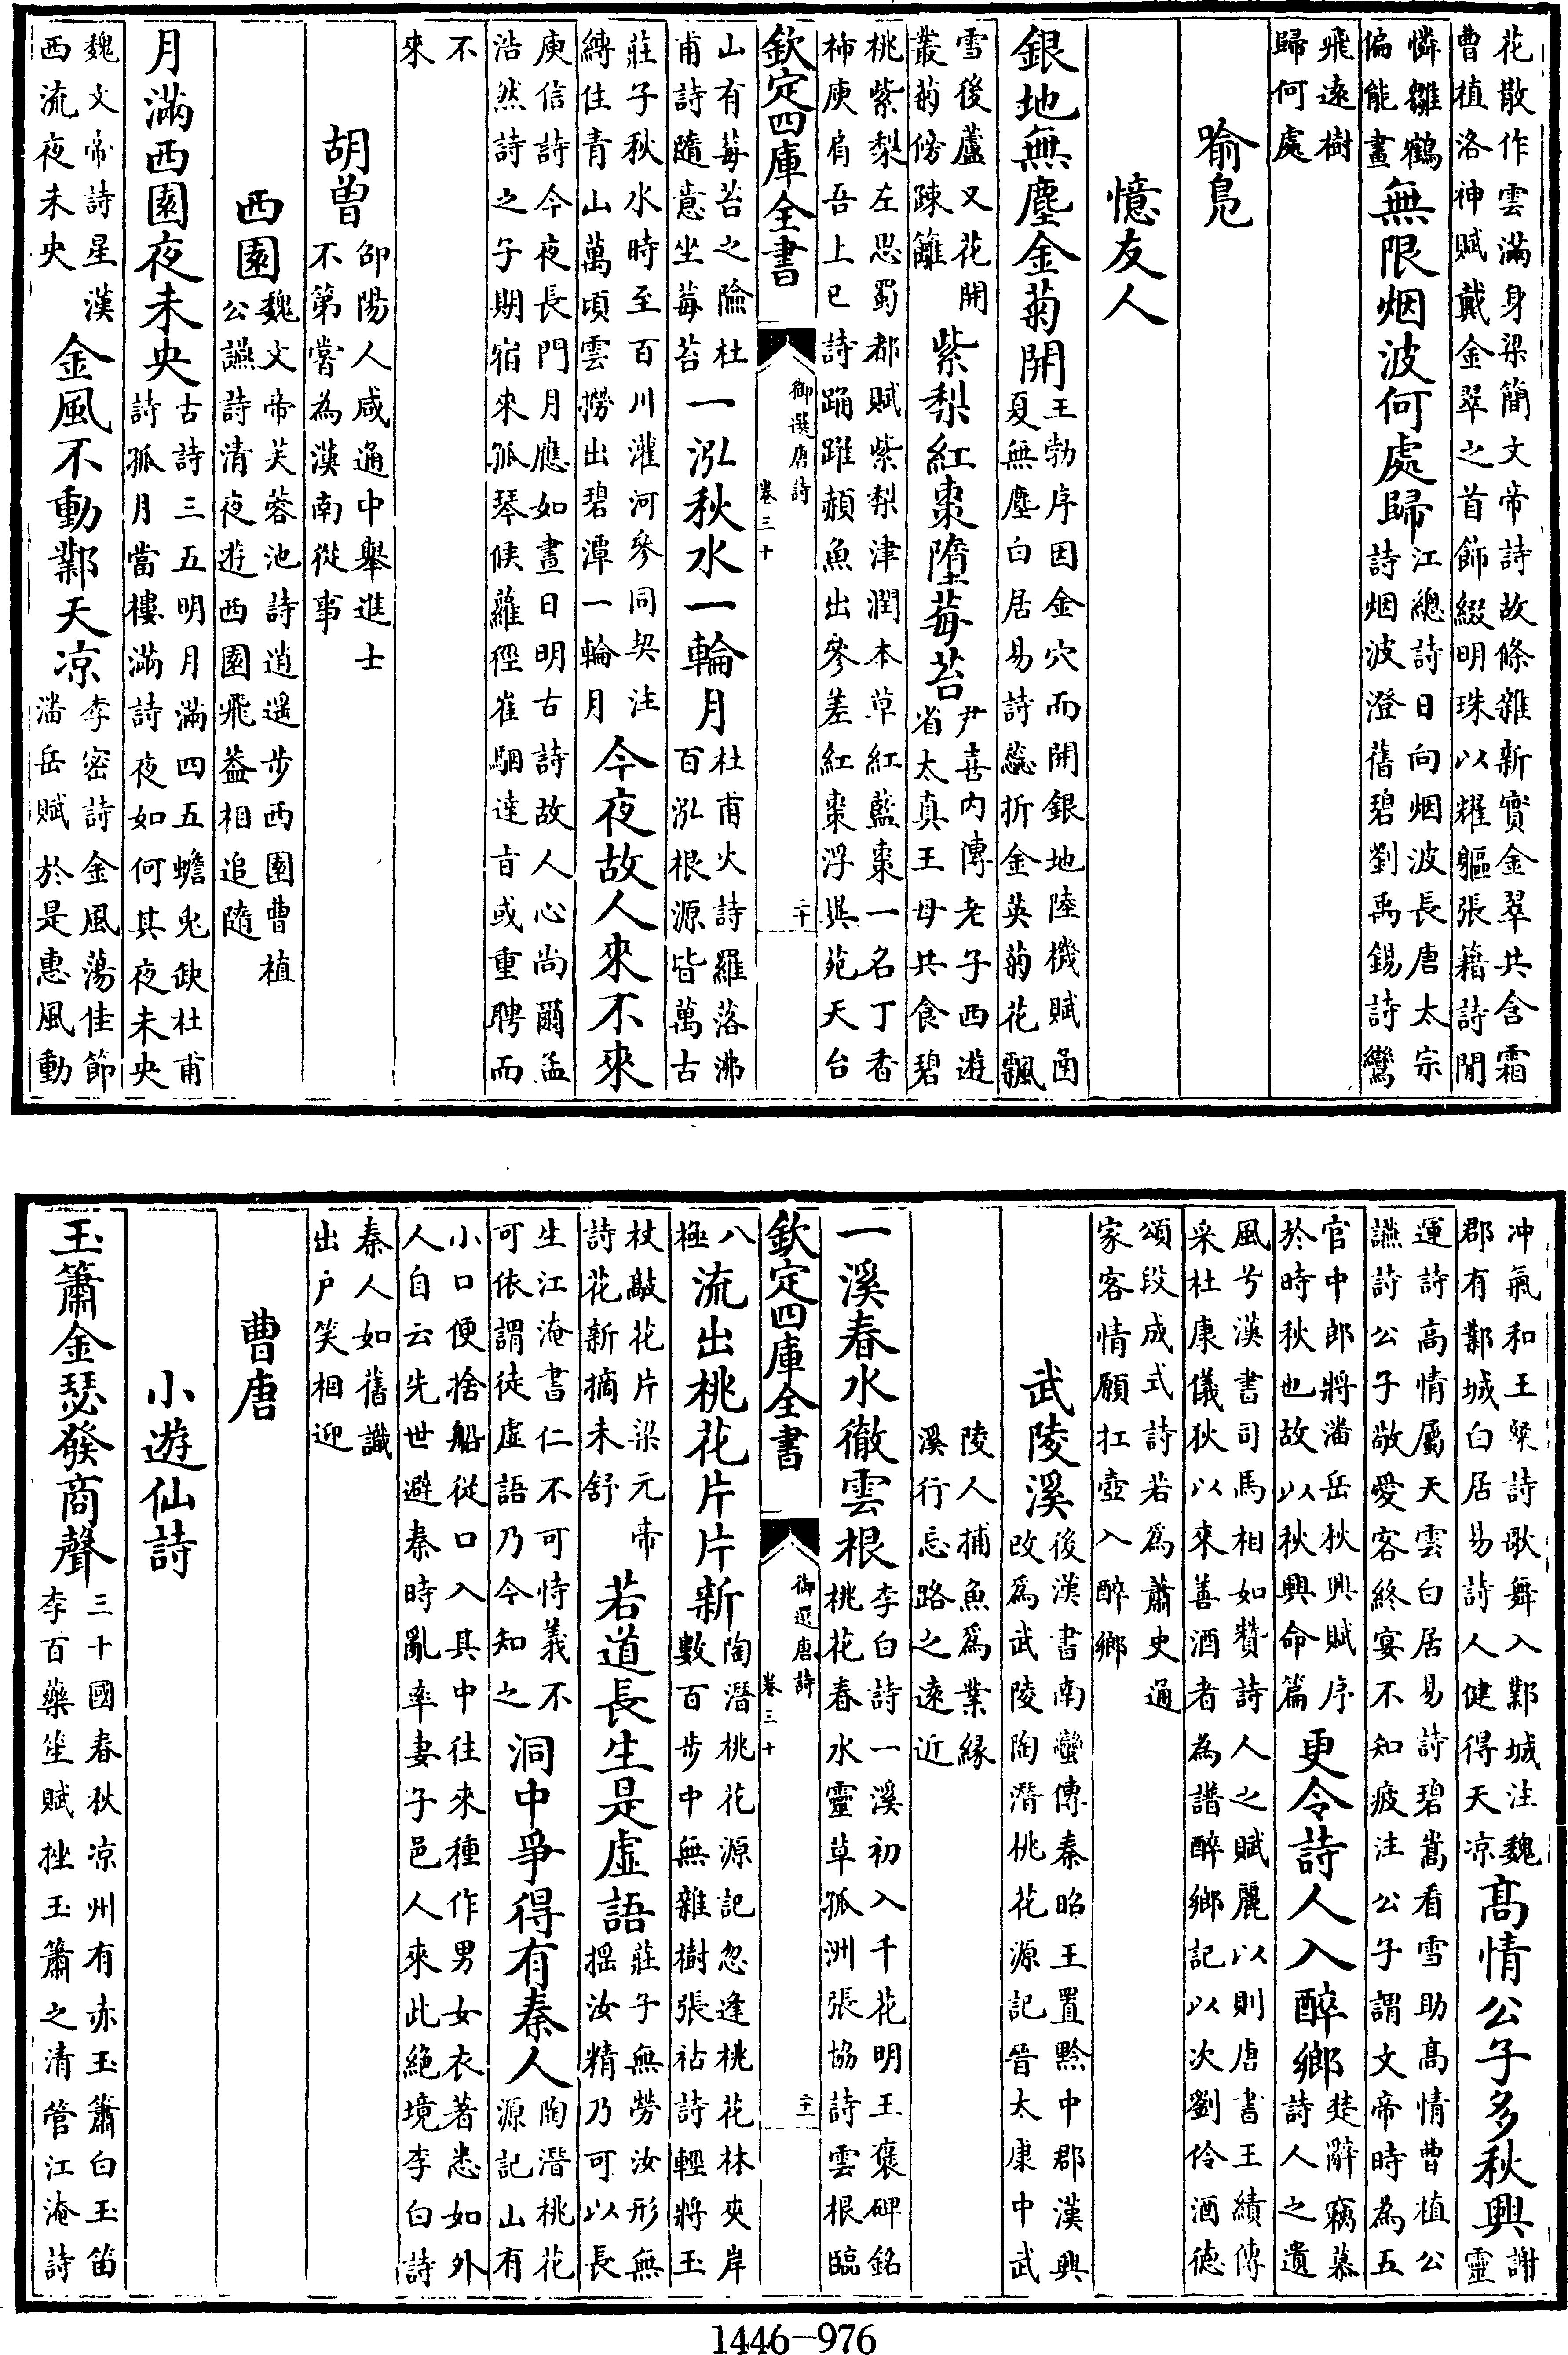 花散作雲滿身梁簡文帝詩故條雜新實金翠共含霜
曹植洛神賦戴金翠之首飾綴明珠以耀軀張籍詩閒
憐雛鶴
偏能畫
無限烟波何處歸
江總詩日向烟波長唐太宗
詩烟波澄舊碧劉禹錫詩鸞
飛遠樹
歸何處
喻鳧
憶友人
銀地無塵金菊開
王勃序因金穴而開銀地陸機賦函
夏無塵白居易詩蕊折金英菊花飄
雪後蘆又花開
叢菊傍疎籬
紫梨紅棗墮莓苔
尹喜內傳老子西遊
省太真王母共食碧
桃紫梨左思蜀都賦紫梨津潤本草紅藍棗一名丁香
柿庾肩吾上巳詩踊躍頳魚出參差紅棗浮吳苑天台
欽定四庫全書
御選唐詩
卷三十
二十
山有莓苔之險杜
甫詩隨意坐莓苔
一泓秋水一輪月
杜甫火詩羅落沸
百泓根源皆萬古
莊子秋水時至百川灌河參同契注
縛住青山萬頃雲撈出碧潭一輪月
今夜故人來不來
庾信詩今夜長門月應如晝日明古詩故人心尚爾孟
浩然詩之子期宿來孤琴候蘿徑崔駰達旨或重聘而
不
來
胡曾
邵陽人咸通中舉進士
不第嘗為漢南從事
西園
魏文帝芙蓉池詩逍遥步西園曹植
公讌詩清夜遊西園飛蓋相追隨
月滿西園夜未央
古詩三五明月滿四五蟾兎缺杜甫
詩孤月當樓滿詩夜如何其夜未央
魏文帝詩星漢
西流夜未央
金風不動鄴天凉
李密詩金風蕩佳節
潘岳賦於是惠風動
冲氣和王粲詩歌舞入鄴城注魏
郡有鄴城白居易詩人健得天凉
高情公子多秋興
謝
靈
運詩高情屬天雲白居易詩碧嵩看雪助高情曹植公
讌詩公子敬愛客終宴不知疲注公子謂文帝時為五
官中郎將潘岳秋興賦序
於時秋也故以秋興命篇
更令詩人入醉鄉
楚辭竊慕
詩人之遺
風兮漢書司馬相如贊詩人之賦麗以則唐書王績傳
采杜康儀狄以來善酒者為譜醉鄉記以次劉伶酒德
頌段成式詩若爲蕭史通
家客情願扛壺入醉鄉
武陵溪
後漢書南蠻傳秦昭王置黔中郡漢興
改爲武陵陶潛桃花源記晉太康中武
陵人捕魚爲業緣
溪行忘路之遠近
一溪春水徹雲根
李白詩一溪初入千花明王褒碑銘
桃花春水靈草孤洲張協詩雲根臨
欽定四庫全書
御選唐詩
卷三十
二十一
八
極
流出桃花片片新
陶潛桃花源記忽逢桃花林夾岸
數百步中無雜樹張祜詩輕將玉
杖敲花片梁元帝
詩花新摘未舒
若道長生是虛語
莊子無勞汝形無
摇汝精乃可以長
生江淹書仁不可恃義不
可依謂徒虛語乃今知之
洞中爭得有秦人
陶潛桃花
源記山有
小口便捨船從口入其中往來種作男女衣著悉如外
人自云先世避秦時亂率妻子邑人來此絕境李白詩
秦人如舊識
出戸笑相迎
曹唐
小遊仙詩
玉簫金瑟發商聲
三十國春秋凉州有赤玉簫白玉笛
李百藥笙賦挫玉簫之清管江淹詩
1446—976